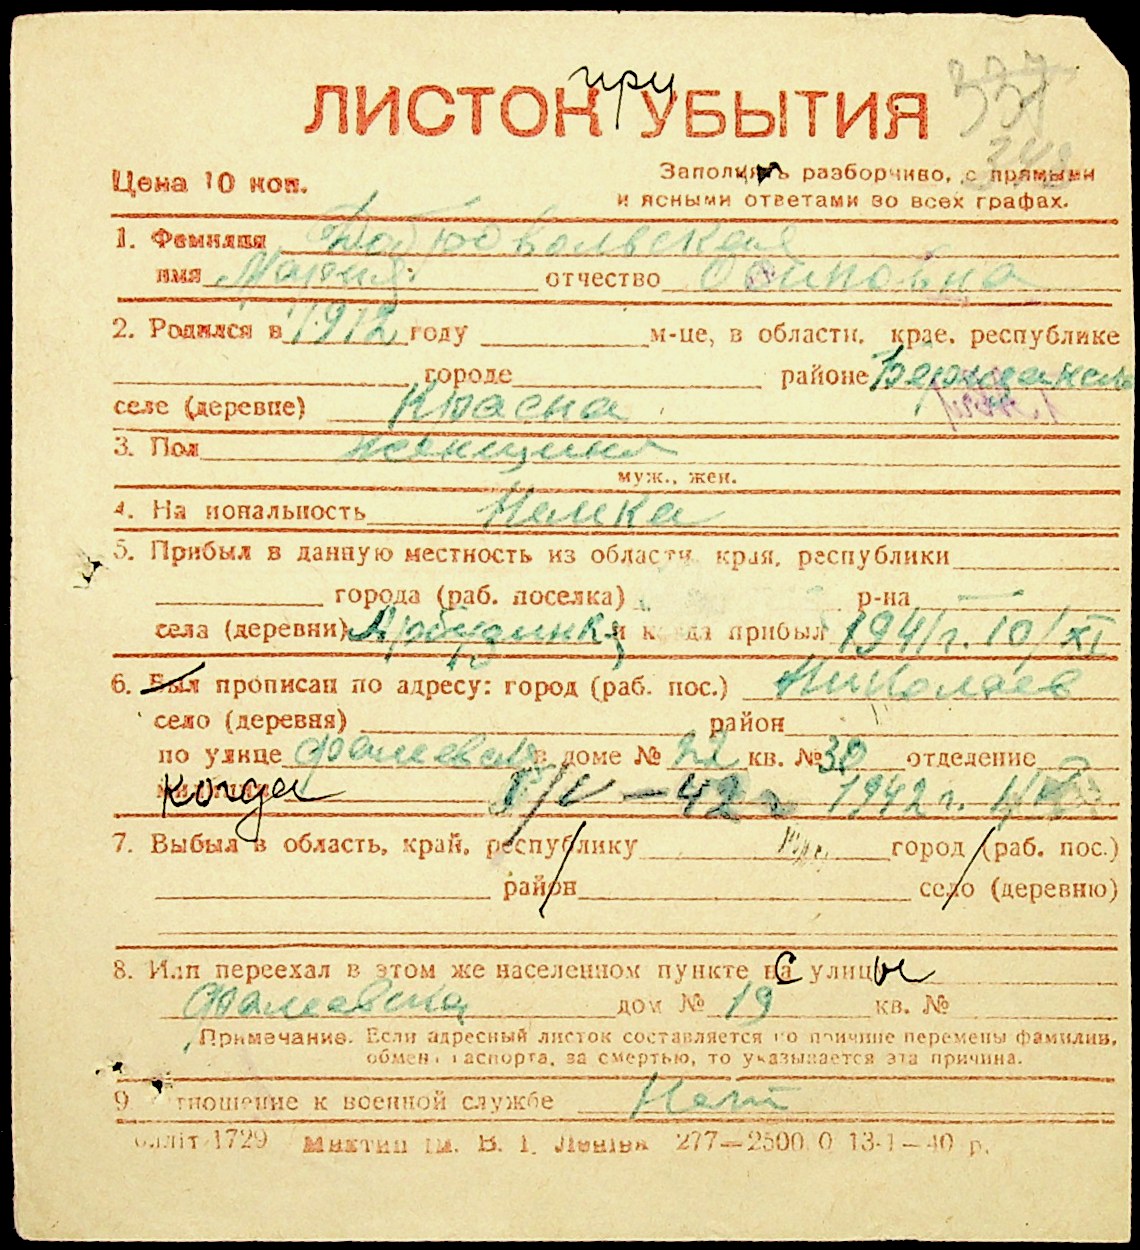 337
ЛИСТОК при УБЫТИЯ
343
Цена 10 коп.
Заполнять разборчиво, с прямыми
и ясными ответами во всех графах.
1. Фамилия
имя Мария отчество Осиповна
2. Родился в 1912 году м-це, в области, крае, республике
городе районе
селе (деревне) Красна
3. Пол женщина
муж., жен.
4. Национальность Немка
5. Прибыл в данную местность из области, края, республики
города (раб. поселка) р-на
села (деревни) Арбузинка и когда прибыл 1941 г. 10/XI
6. Был прописан по адресу: город (раб. пос.) Николаев
село (деревня) район
по улице Фалеевская в доме № 22 кв. № 30 отделение
когда 1942 г.
7. Выбыл в область, край, республику город (раб. пос.)
район село (деревню)
8. Или переехал в этом же населенном пункте с улицы
Фалеевска дом № 19 кв. №
Примечание. Если адресный листок составляется по причине перемены фамилии,
обмена паспорта, за смертью, то указывается эта причина.
9. Отношение к военной службе Нет
1729 277—2500 13-1—40 р.